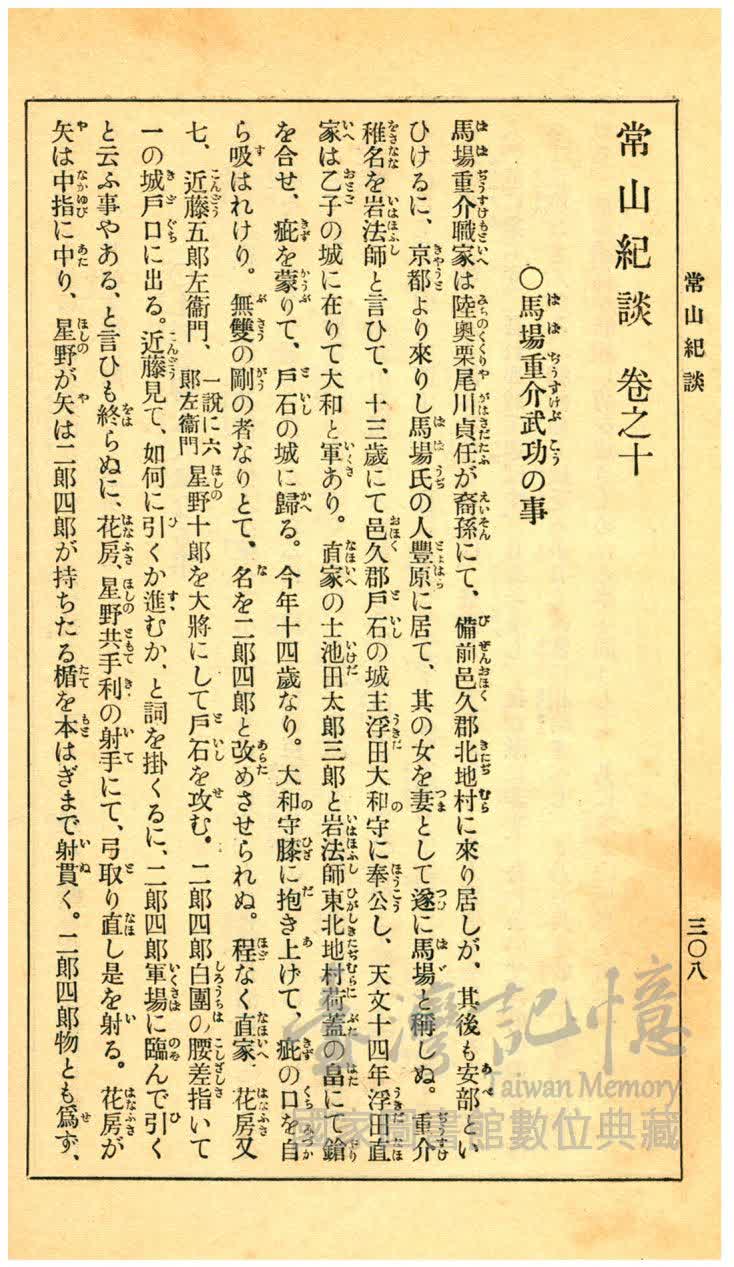 常山紀談
三〇八
常山紀談 卷之十
〇馬場重介武功の事
馬場重介職家は陸奥栗尾川貞任が裔孫にて、備前邑久郡北地村に來り居しが、其後も安部とい
ひけるに、京都より來りし馬場氏の人豐原に居て、其の女を妻として遂に馬場と稱しぬ。重介
稚名を岩法師と言ひて、十三歳にて邑久郡戸石の城主浮田大和守に奉公し、天文十四年浮田直
家は乙子の城に在りて大和と軍あり。直家の士池田太郎三郎と岩法師東北地村荷蓋の畠にて鎗
を合せ、疵を蒙りて、戸石の城に歸る。今年十四歳なり。大和守膝に抱き上げて、疵の口を自
ら吸はれけり。無雙の剛の者なりとて、名を二郎四郎と改めさせられぬ。程なく直家、花房又
七、近藤五郎左衞門、一說に六郎左衞門星野十郎を大將にして戸石を攻む。二郎四郎白團の腰差指いて
一の城戸口に出る。近藤見て、如何に引くか進むか、と詞を掛くるに、二郎四郎軍場に臨んで引く
と云ふ事やある、と言ひも終らぬに、花房、星野共手利の射手にて、弓取り直し是を射る。花房が
矢は中指に中り、星野が矢は二郎四郎が持ちたる楯を本はぎまで射貫く。二郎四郎物とも爲ず、
臺灣記憶
Taiwan Memory
國家圖書館數位典藏